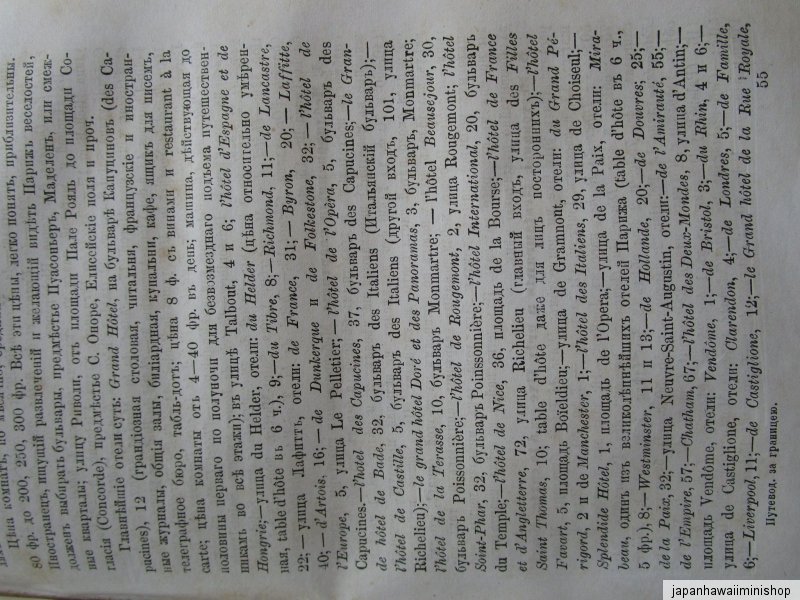 80 фр. до 200, 250, 300 фр. Всѣ эти цѣны, легко понять, приблизительны.
Иностранецъ, ищущій развлеченій и желающій видѣть Парижъ веселостей,
долженъ выбирать бульвары, предмѣстье Пуассоньеръ, Маделенъ, или смеж-
ные кварталы; улицу Риволи, отъ площади Пале Рояль до площади Со-
гласія (Concorde), предмѣстье С. Оноре, Елисейскіе поля и проч.
Главнѣйшіе отели суть: Grand Hôtel, на бульварѣ Капуциновъ (des Ca-
pucines), 12 (грандіозная столовая, читальня, французскіе и иностран-
ные журналы, общія залы, билліардная, купальни, кафе, ящикъ для писемъ,
телеграфное бюро, табль-дотъ; цѣна 8 ф. съ винами и restaurant à la
carte; цѣна комнаты отъ 4—40 фр. въ день; машина, дѣйствующая до
половины перваго по полуночи для безвозмезднаго подъема путешествен-
никамъ во всѣ этажи); въ улицѣ Talbout, 4 и 6; l'hôtel d'Espagne et de
Hongrie;—улица du Helder, отели: du Helder (цѣна относительно умѣрен-
ная, table d'hôte въ 6 ч.), 9;—du Tibre, 8;—Richmond, 11;—de Lancastre,
22; — улица Лафиттъ, отели: de France, 31;— Byron, 20; — Laffitte,
40; — d'Artois, 16;— de Dunkerque и de Folkestone, 32; — l'hôtel de
l'Europe, 5, улица Le Pelletier;— l'hôtel de l'Opêra, 5, бульваръ des
Capucines.—l'hotel des Capucines, 37, бульваръ des Capucines;—le Gran-
de hôtel de Bade, 32, бульваръ des Italiens (Итальянскій бульваръ);—
l'hôtel de Castille, 5, бульваръ des Italiens (другой входъ, 101, улица
Richelieu);—le grand hôtel Doré et des Panoramas, 3, бульваръ, Monmartre;
l'hôtel de la Terasse, 10, бульваръ Monmartre; — l'hôtel Beausejour, 30,
бульваръ Poissonnière;—l'hôtel de Rougemont, 2, улица Rougemont; l'hôtel
Saint-Phar, 32, бульваръ Poisssonnière;—l'hôtel International, 20, бульваръ
du Temple;—l'hôtel de Nice, 36, площадь de la Bourse;—l'hôtel de France
et d'Angletterre, 72, улица Richelieu (главный входъ, улица des Filles
Saint Thomas, 10; table d'hôte даже для лицъ постороннихъ);—l'hôtel
Favart, 5, площадь Boïeldieu;—улица de Gramnout, отели: du Grand Pé-
rigord, 2 и de Manchester, 1;—l'hôtel des Italiens, 29, улица de Choiseul;—
Splendide Hôtel, 1, площадь de l'Opera;—улица de la Paix, отели: Mira-
beau, одинъ изъ великолѣпнѣйшихъ отелей Парижа (table d'hôte въ 6 ч.,
5 фр.), 8;—Westminster, 11 и 13;—de Hollande, 20;—de Douvres, 25;—
de la Paix, 32;—улица Neuvre-Saint-Augustin, отели:—de l'Amirauté, 55;—
de l'Empire, 57;—Chatham, 67;—l'hôtel des Deux-Mondes, 8, улица d'Antin;—
площадь Vendôme, отели: Vendôme, 1;—de Bristol, 3;—du Rhin, 4 и 6;—
улица de Castiglione, отели: Clarendon, 4;—de Londres, 5;—de Famille,
6;—Liverpool, 11;—de Castiglione, 12;—le Grand hôtel de la Rue Royale,
Путевод. за границею.
55
japanhawaiiminishop